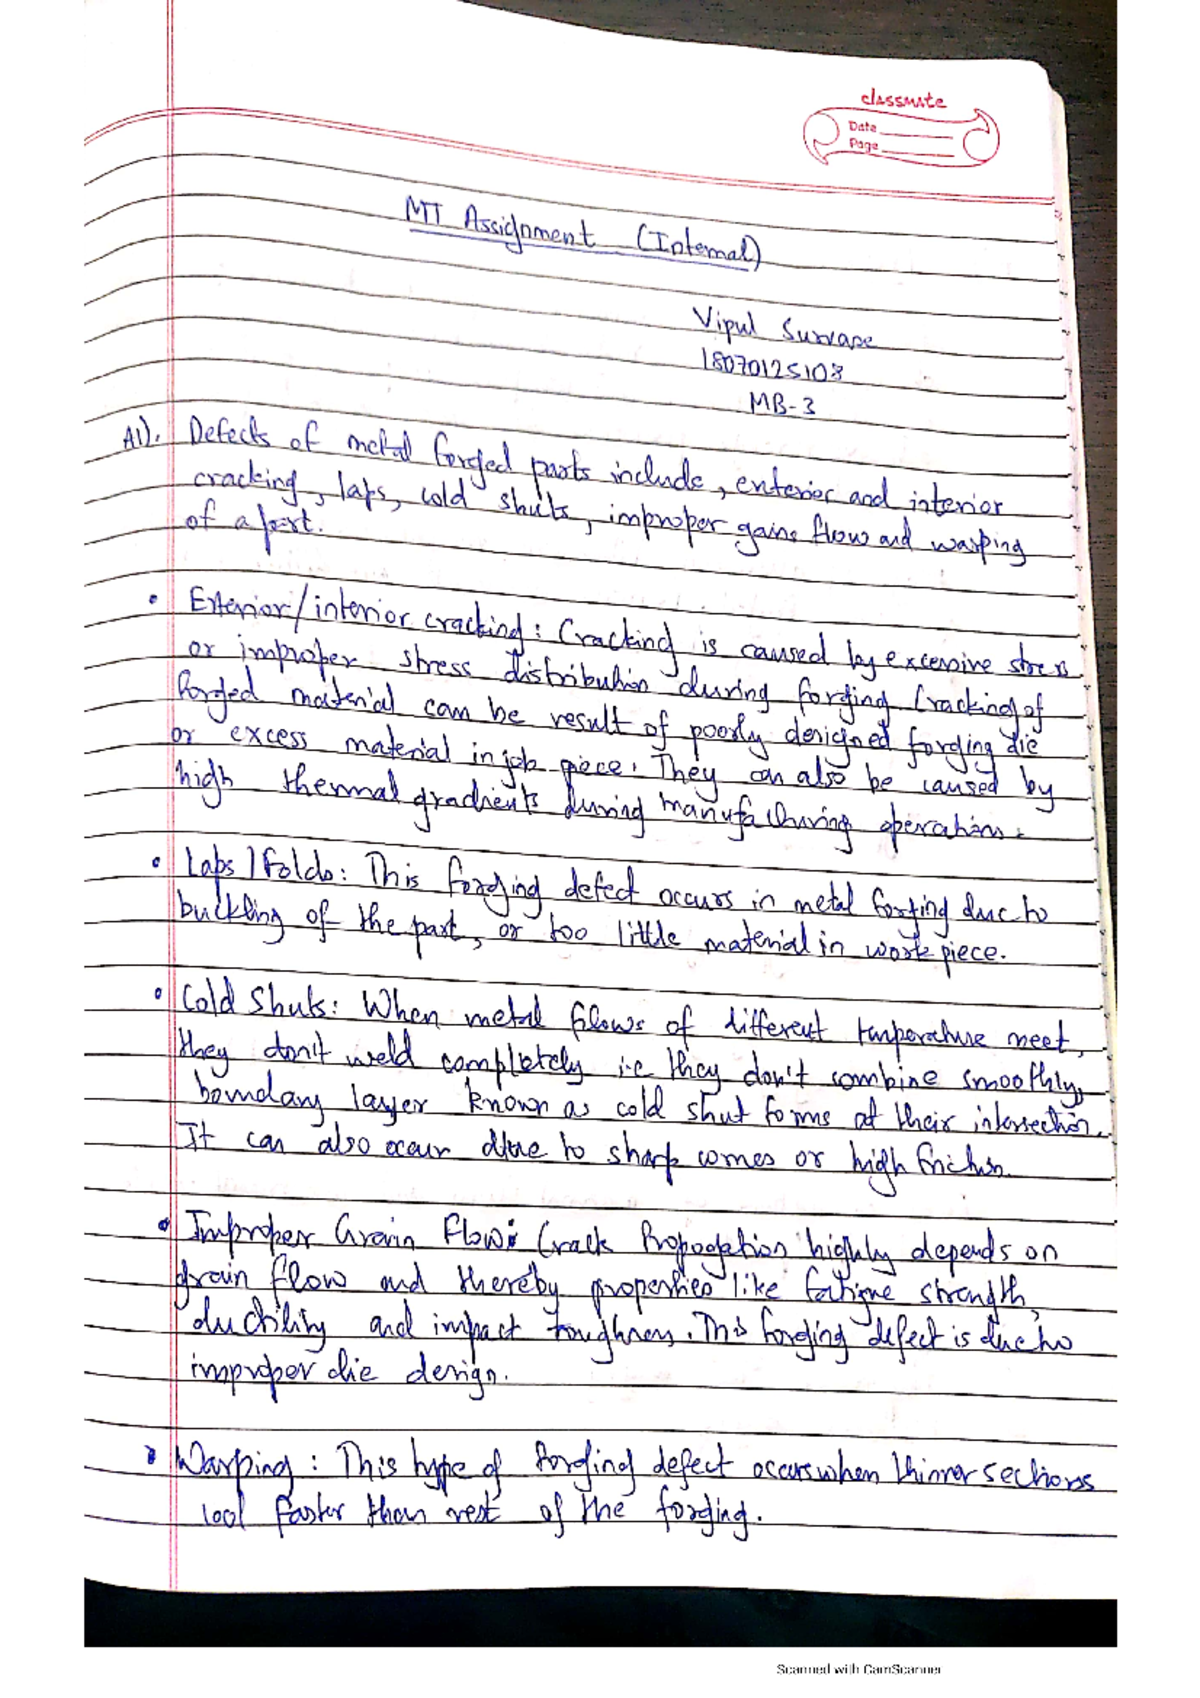 classmate
Date
Page
MTT Assignment (Internal)
Vipul Survase
18070125103
MB-3
A1). Defects of metal forged parts include, enterior and interior
cracking, laps, cold shuts, improper gains flow and warping
of a part.
• Exterior/interior cracking: Cracking is caused by excessive stress
or improper stress distribution during forging Cracking of
forged material can be result of poorly designed forging die
or excess material in job piece. They can also be caused by
high thermal gradients during manufacturing operations.
• Laps/Folds: This forging defect occurs in metal forging due to
buckling of the part, or too little material in work piece.
• Cold Shuts: When metal flows of different temperature meet,
they don't weld completely i.e they don't combine smoothly,
boundary layer known as cold shut forms at their intersection.
It can also occur due to sharp corners or high friction.
• Improper Grain Flow: Crack Propogation highly depends on
grain flow and thereby properties like fatigue strength,
ductility and impact toughness. This forging defect is due to
improper die design.
• Warping: This type of forging defect occurs when thinner sections
cool faster than rest of the forging.
Scanned with CamScanner